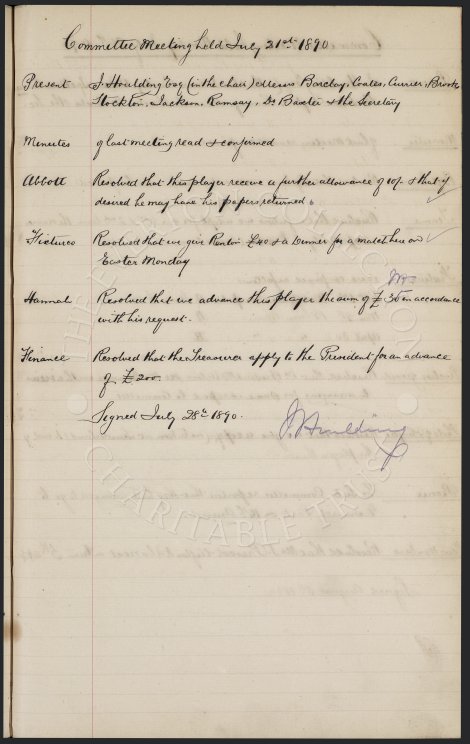 Committee Meeting held July 21st 1890
Present J. Houlding Esq (in the chair) Messrs Barclay, Coates, Currier, Brooks
Stockton, Jackson, Ramsay, Dr Baxter & the Secretary
Minutes of last meeting read & confirmed
Abbott Resolved that this player receive a further allowance of 10/- & that if
desired he may have his papers returned.
Fixtures Resolved that we give Renton £40 & a Dinner for a match here on
Easter Monday
Hannah Resolved that we advance this player the sum of £30 in accordance
with his request.
Finance Resolved that the Treasurer apply to the President for an advance
of £200.
Signed July 28th 1890.
J. Houlding
THE EVERTON COLLECTION
CHARITABLE TRUST